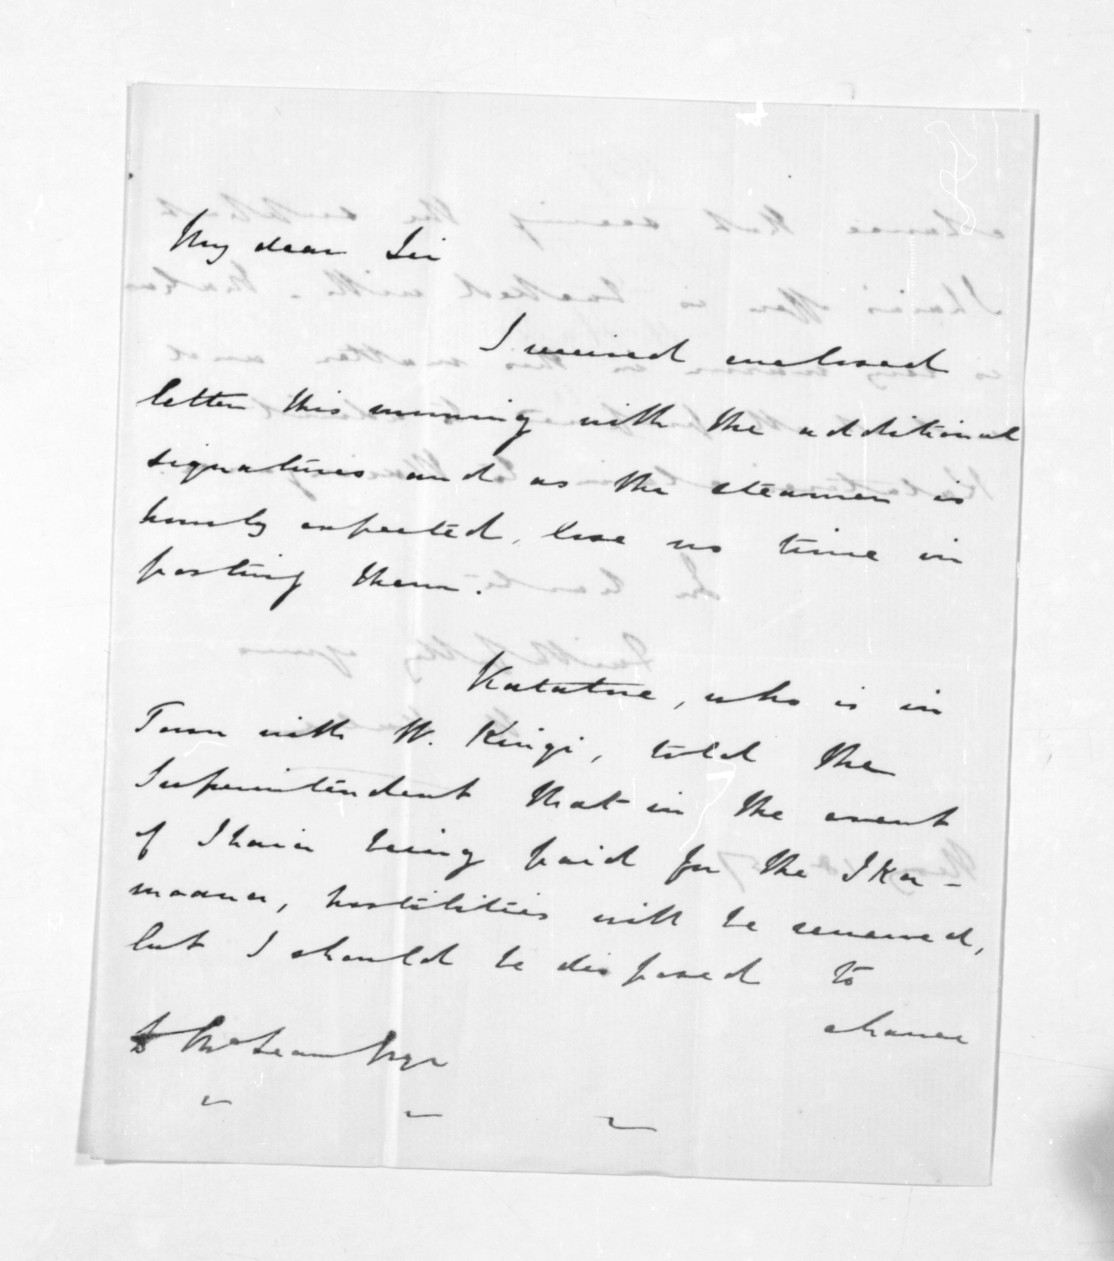 My dear Sir
I received enclosed
letter this morning with the additional
signatures and as the steamer is
hourly expected, lose no time in
posting them.
Katatore, who is in
Town with W. Kingi, told the
Superintendent that in the event
of Ihaia being paid for the Ika-
moana, hostilities will be renewed,
but I should be disposed to
chance
D McLean Esqr